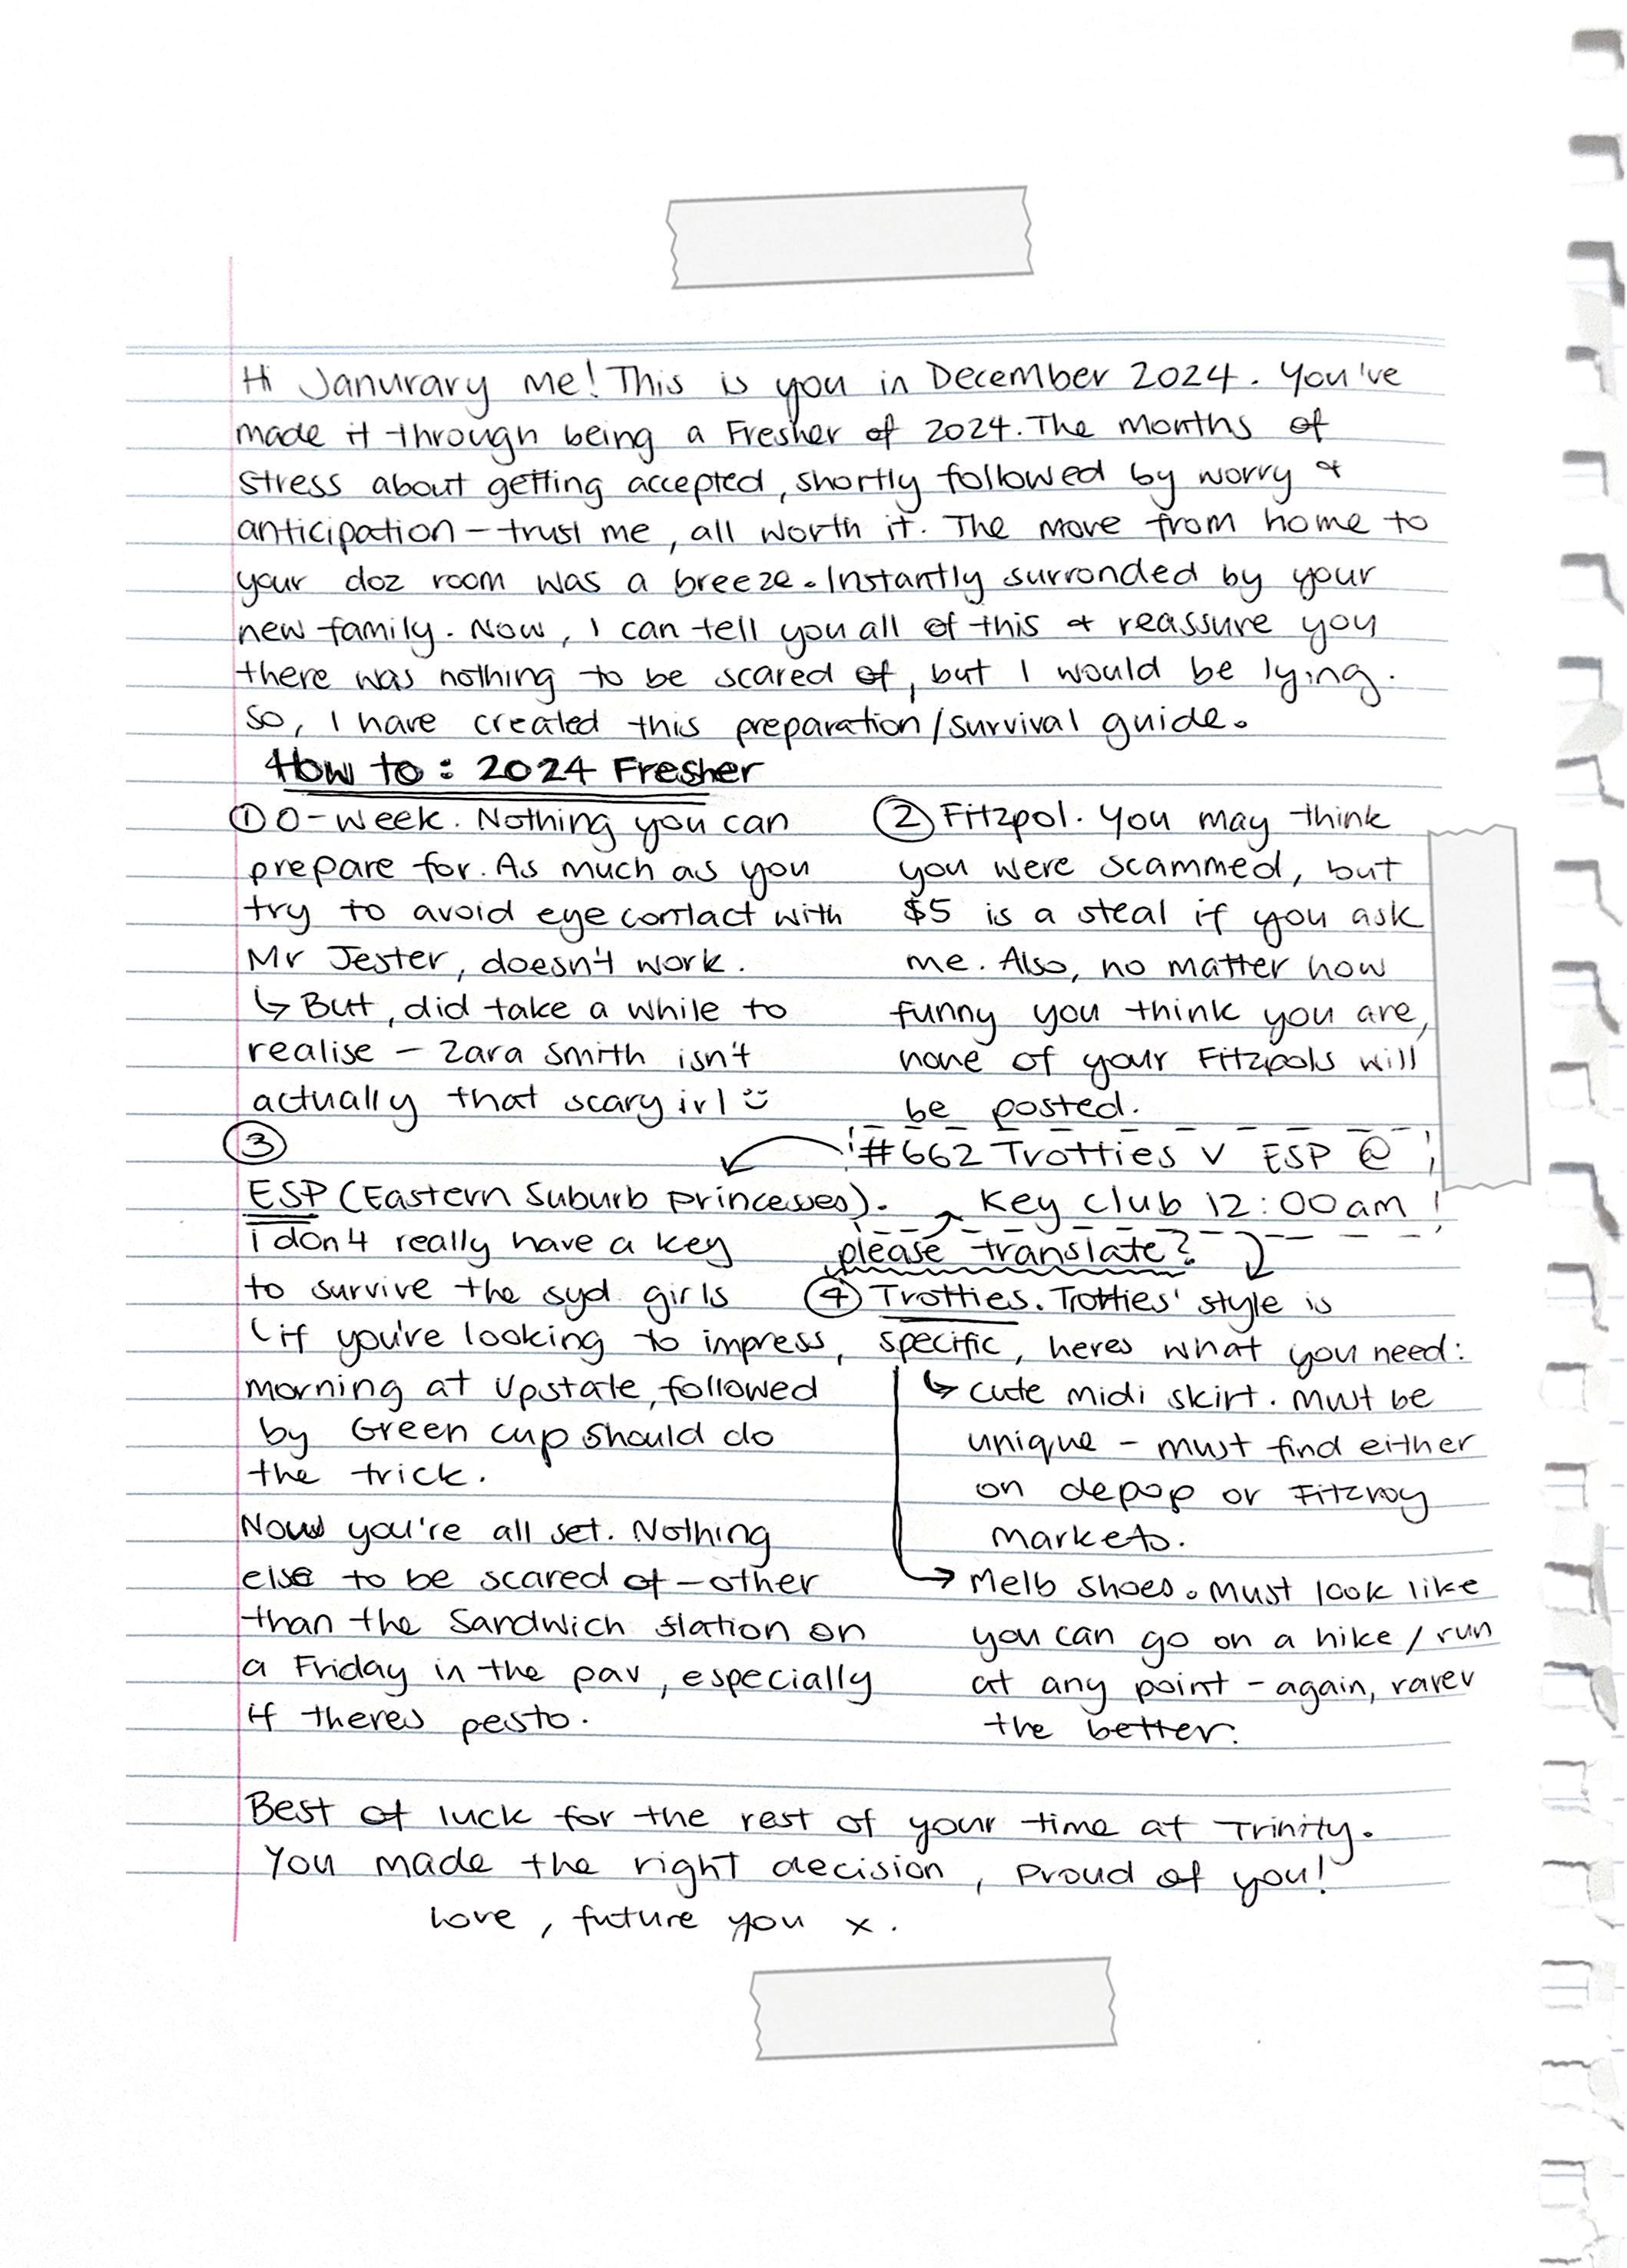 Hi Janurary me! This is you in December 2024. You've
made it through being a Fresher of 2024. The months of
stress about getting accepted, shortly followed by worry &
anticipation - trust me, all worth it. The move from home to
your doz room was a breeze. Instantly surronded by your
new family. Now, I can tell you all of this & reassure you
there was nothing to be scared of, but I would be lying.
So, I have created this preparation/survival guide.
How to: 2024 Fresher
① O-week. Nothing you can
prepare for. As much as you
try to avoid eye contact with
Mr Jester, doesn't work.
↳ But, did take a while to
realise - Zara Smith isn't
actually that scary irl :)
② Fitzpol. You may think
you were scammed, but
$5 is a steal if you ask
me. Also, no matter how
funny you think you are,
none of your Fitzpols will
be posted.
#662 Trotties v ESP @
Key Club 12:00am
please translate?
③
ESP (Eastern Suburb princesses).
i don't really have a key
to survive the syd girls
(if you're looking to impress,
morning at Upstate, followed
by Green cup should do
the trick.
④ Trotties. Trotties' style is
specific, heres what you need:
↳ cute midi skirt. Must be
unique - must find either
on depop or Fitzroy
markets.
→ Melb shoes. Must look like
you can go on a hike / run
at any point - again, rarer
the better.
Now you're all set. Nothing
else to be scared of - other
than the Sandwich station on
a Friday in the pav, especially
if theres pesto.
Best of luck for the rest of your time at Trinity.
You made the right decision, proud of you!
Love, future you x.